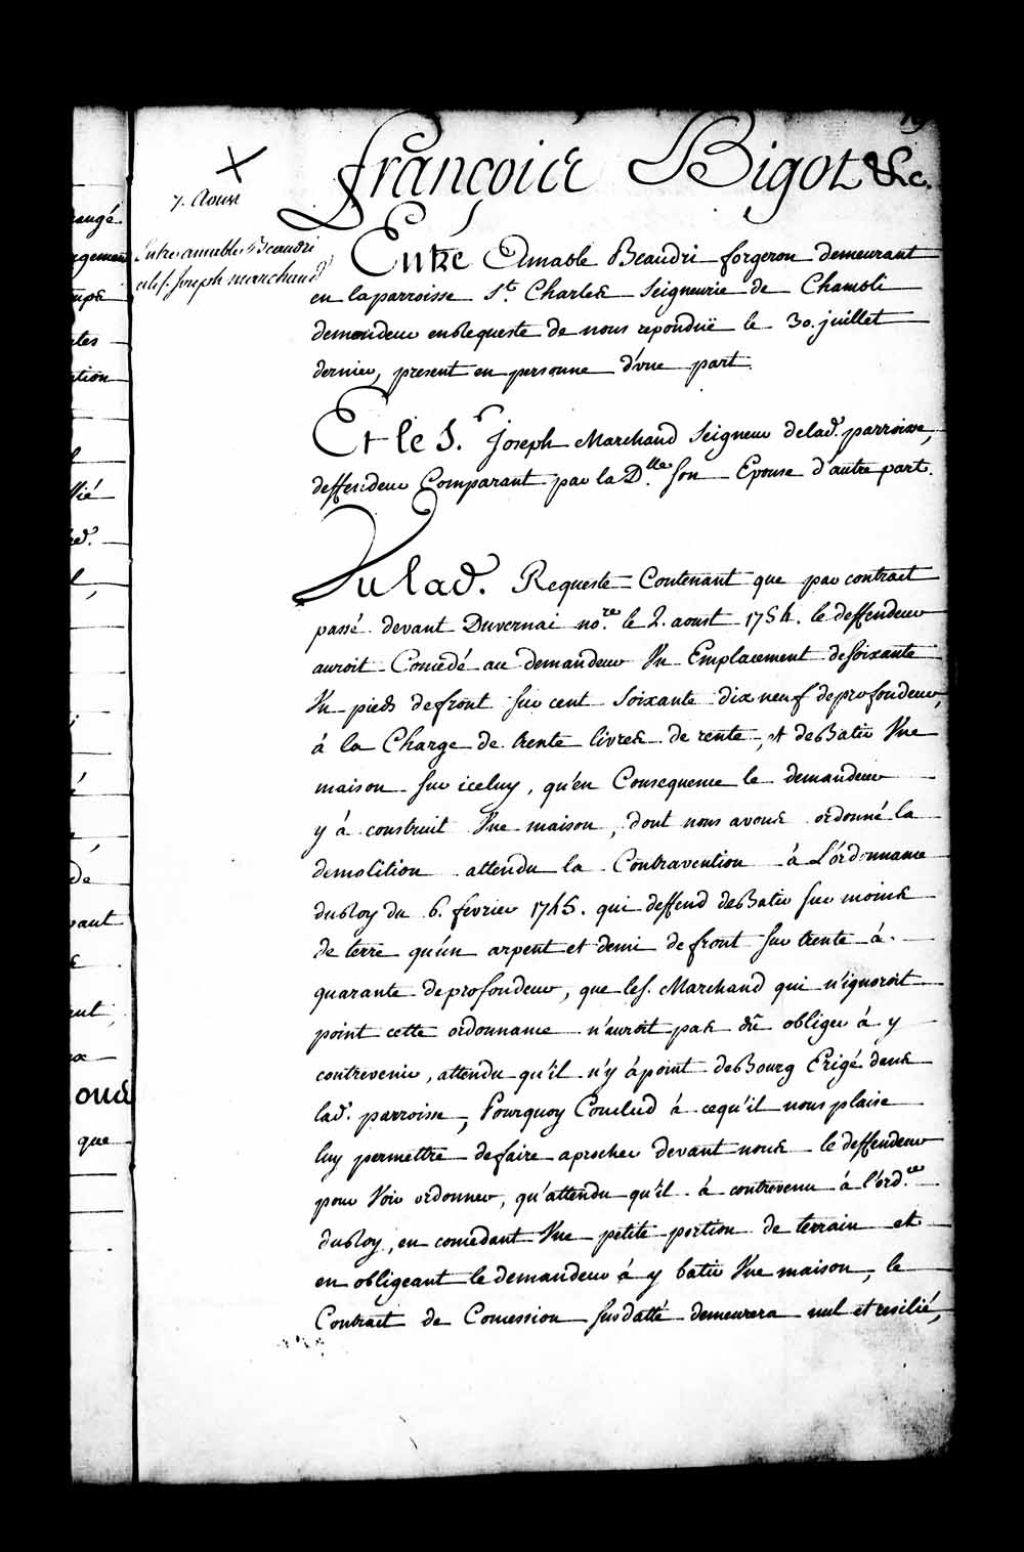 7. Aoust
Entre amable Beaudri
et le s. Joseph marchand
françois Bigot &c.
Entre Amable Beaudri forgeron demeurant
en la parroisse St. Charles Seigneurie de Chambli
demandeur en Requeste de nous reponduë le 30. juillet
dernier, present en personne d'vne part.
Et le S.r Joseph Marchand Seigneur de lad. parroisse,
deffendeur Comparant par la D.lle son Epouse d'autre part.
Vu lad. Requeste Contenant que par contract
passé devant Duvernai no.re le 2. aoust 1754. le deffendeur
auroit Concedé au demandeur Vn Emplacement de soixante
Vn pieds de front sur cent soixante dix neuf de profondeur,
à la Charge de trente livres de rente, et de Batir Vne
maison sur iceluy, qu'en Consequence le demandeur
y à construit Vne maison, dont nous avons ordonné la
demolition attendu la Contravention à L'ordonnance
du Roy du 6. fevrier 1745. qui deffend de Batir sur moins
de terre qu'un arpent et demi de front sur trente à
quarante de profondeur, que le s. Marchand qui n'ignoroit
point cette ordonnance n'auroit pas dû obliger à y
contrevenir, attendu qu'il n'y à point de Bourg Erigé dans
lad. parroisse, Pourquoy Conclud à ce qu'il nous plaise
luy permettre de faire aprocher devant nous le deffendeur
pour Voir ordonner, qu'attendu qu'il à contrevenu à l'ord.ce
du Roy, en concedant Vne petite portion de terrain et
en obligeant le demandeur à y batir Vne maison, le
Contract de Concession susdatté demeurera nul et resilié,
angé
gement
tion
lié
ed.
de
vant
ous
que